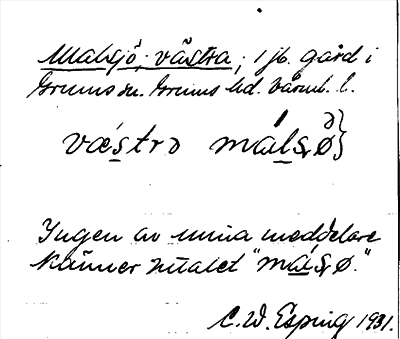 Malsjö, västra; 1 jb. gård i
Grums sn. Grums hd. Värml. l.
væstrə málsø
Ingen av mina meddelare
känner uttalet "málsø."
C. W. Esping 1931.